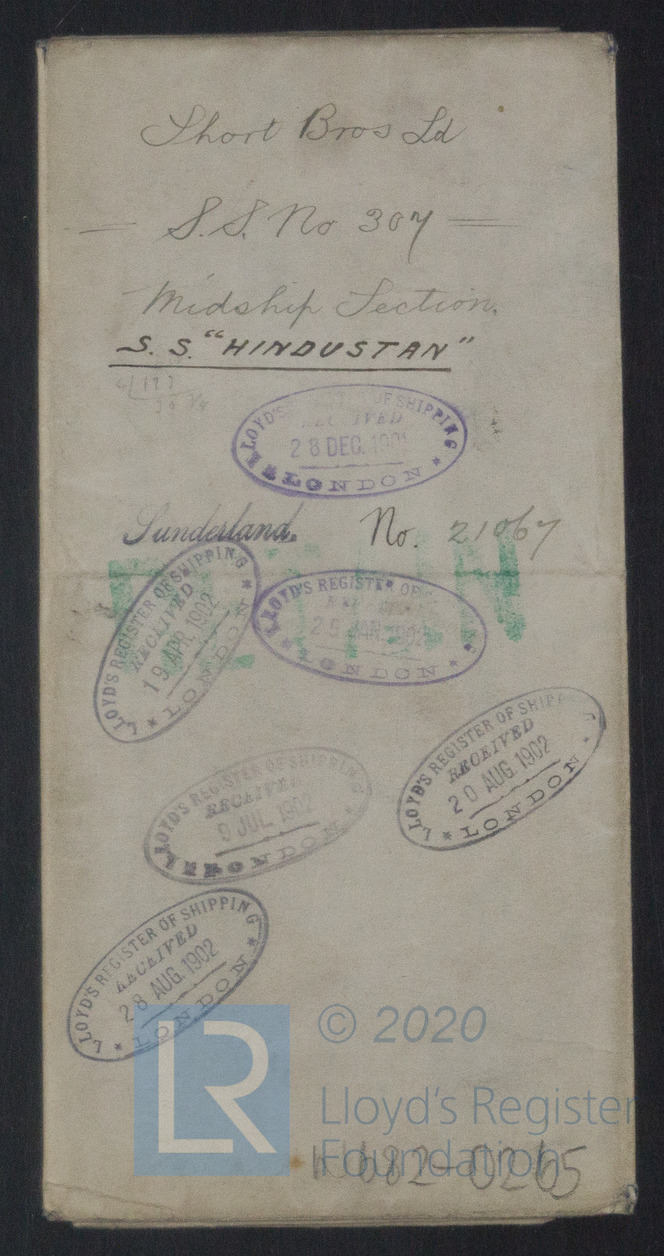 Short Bros Ld
S.S. No 307
Midship Section.
S.S. "HINDUSTAN"
LLOYD'S REGISTER OF SHIPPING
RECEIVED
28 DEC. 1901
LONDON
Sunderland. No. 21067
LLOYD'S REGISTER OF SHIPPING
RECEIVED
19 APR. 1902
LONDON
LLOYD'S REGISTER OF
29 JAN. 1902
LONDON
LLOYD'S REGISTER OF SHIPP
RECEIVED
20 AUG. 1902
LONDON
LLOYD'S REGISTER OF SHIPPING
RECEIVED
9 JUL. 1902
LONDON
LLOYD'S REGISTER OF SHIPPING
RECEIVED
28 AUG. 1902
LONDON
LR
© 2020
Lloyd's Register
Foundation
682-0265